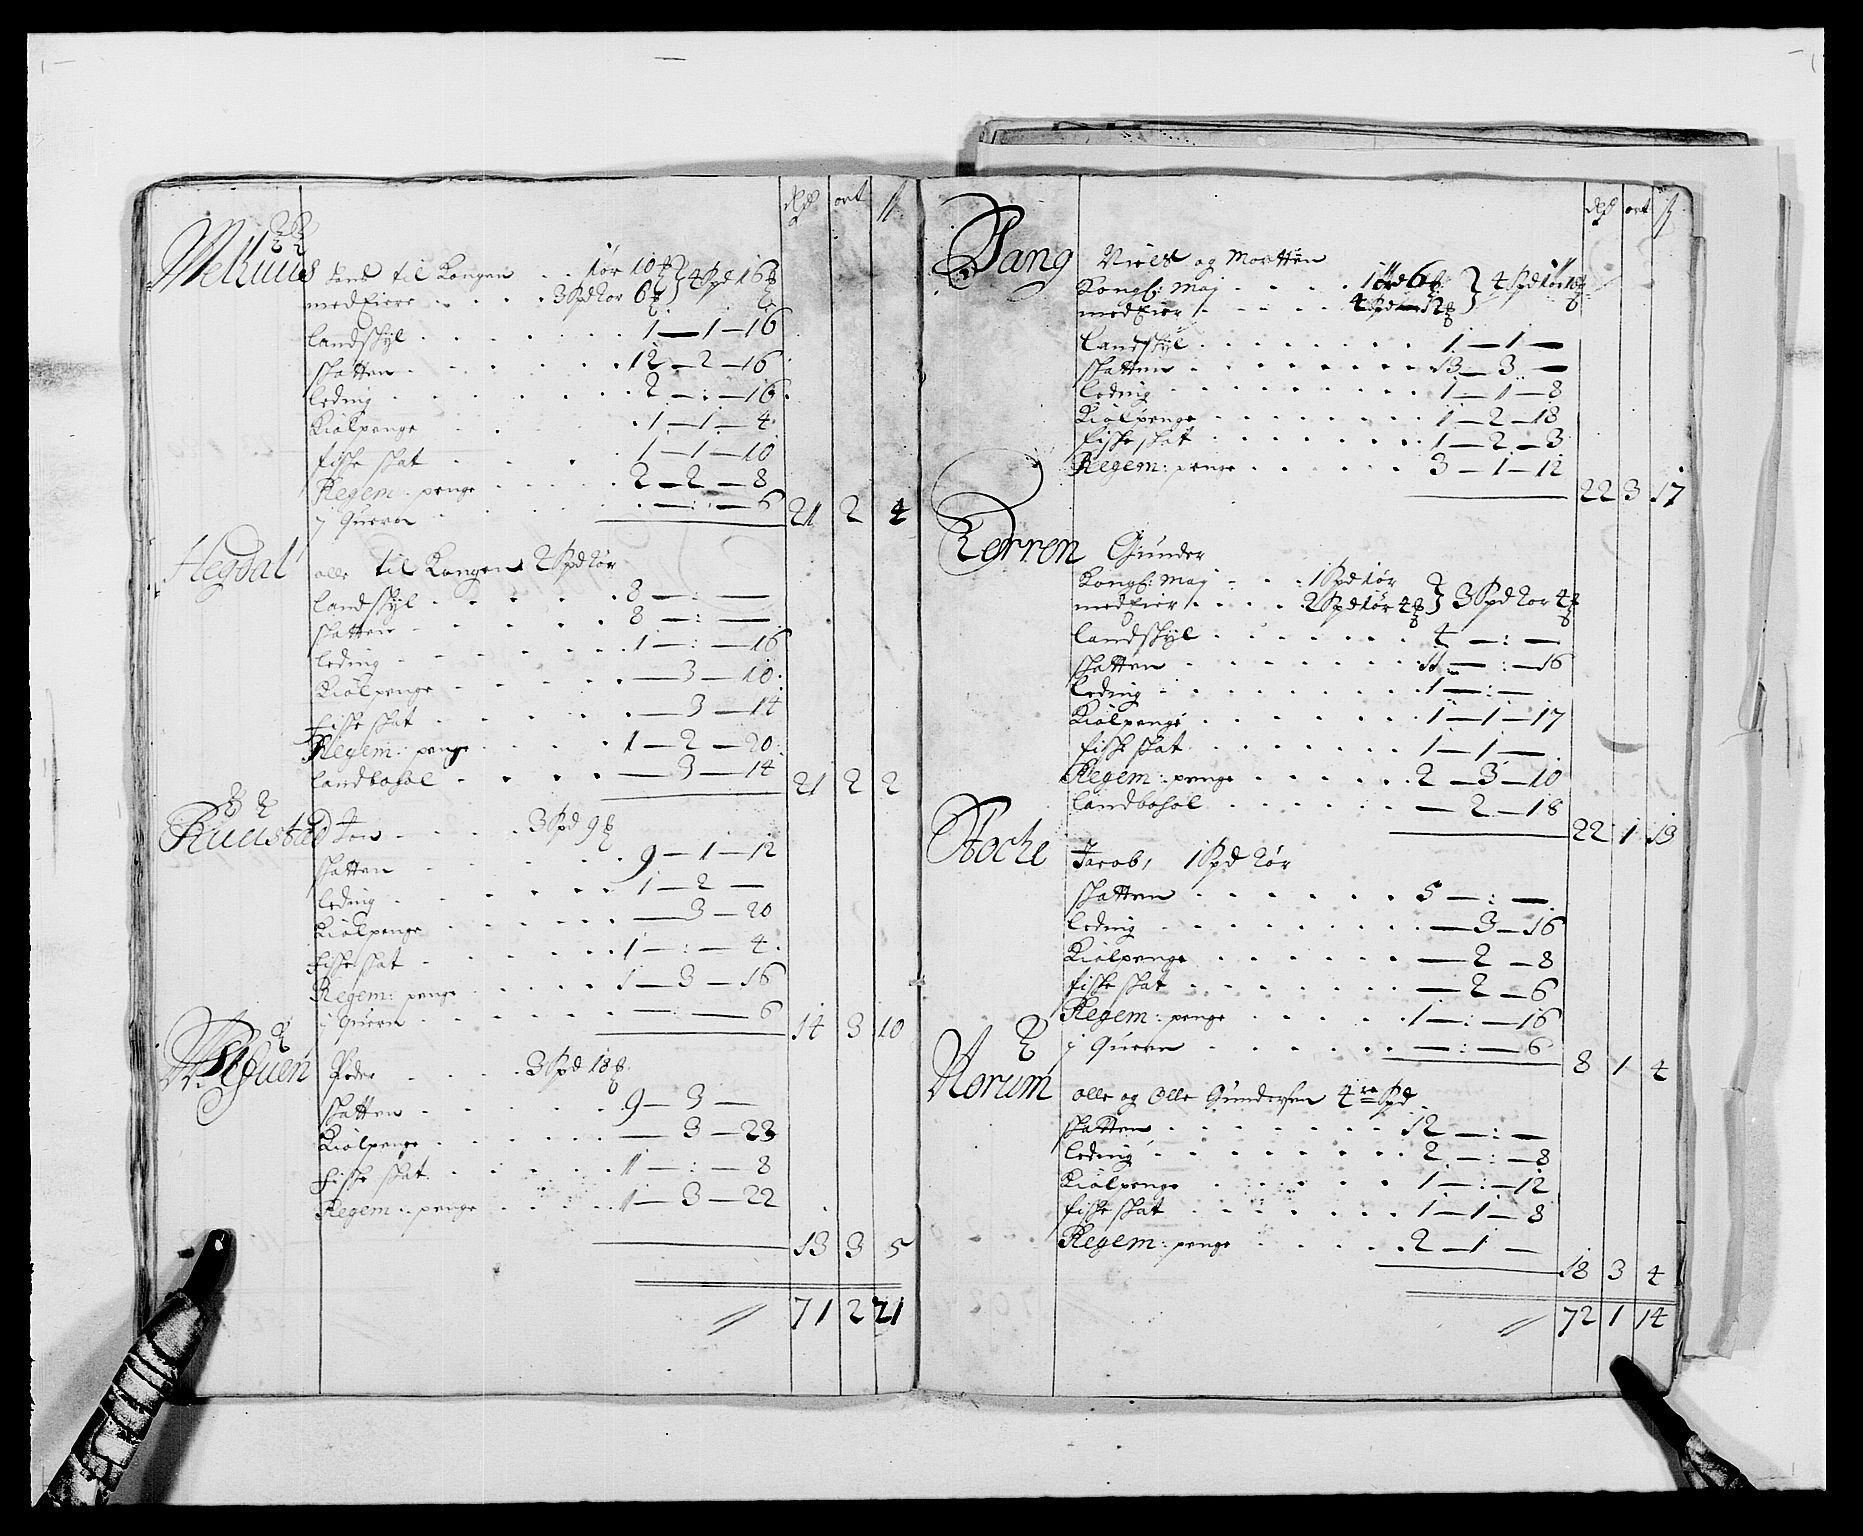 dlr ort ß
Melhuus Jens til Kongen . . 1ør 10 } 4 Spd 16
medEiere . . . 3 Spd 2ør 6
landskyl . . . 1 — 1 — 16
skatten . . . 12 — 2 — 16
leding . . . 2 — : — 16
Kiølpenge . . . 1 — 1 — 4
fiske skat . . . 1 — 1 — 10
Regem: penge . . . 2 — 2 — 8
j Quern . . . — : — 6
21 2 4
Hegdal olle til Kongen 2 Spd 1ør
landskyl . . . 8 — : —
skatten . . . 8 — : —
leding . . . 1 — : — 16
Kiølpenge . . . — 3 — 10
fiske skat . . . — 3 — 14
Regem: penge . . . 1 — 2 — 20
landbohol . . . — 3 — 14
21 2 2
Ruustad Jon . . . 3 Spd 9
skatten . . . 9 — 1 — 12
leding . . . 1 — 2 —
Kiølpenge . . . — 3 — 20
fiske skat . . . 1 — : — 4
Regem: penge . . . 1 — 3 — 16
j Quern . . . — : — 6
14 3 10
Peder . . . 3 Spd 18
skatten . . . 9 — 3 —
Kiølpenge . . . — 3 — 23
fiske skat . . . 1 — : — 8
Regem: penge . . . 1 — 3 — 22
13 3 5
71 2 21
dlr ort ß
Sang Niels og Morten
Kongl: May . . . 1ør 6 } 4 Spd 1ør
medEier . . . 4 Spd
landskyl . . . 1 — 1 —
skatten . . . 13 — 3 —
leding . . . 1 — 1 — 8
Kiølpenge . . . 1 — 2 — 18
fiske skat . . . 1 — 2 — 3
Regem: penge . . . 3 — 1 — 12
22 3 17
Gunder
Kongl: May . . . 1 Spd 1ør
medEier . . . 2 Spd 1ør 4 } 3 Spd 2ør 4
landskyl . . . 4 — : —
skatten . . . 11 — : — 16
leding . . . 1 — : —
Kiølpenge . . . 1 — 1 — 17
fiske skat . . . 1 — 1 —
Regem: penge . . . 2 — 3 — 10
landbohol . . . — 2 — 18
22 1 13
Stocke Jacob, 1 Spd 2ør
skatten . . . 5 — : —
leding . . . — 3 — 16
Kiølpenge . . . — 2 — 8
fiske skat . . . — 2 — 6
Regem: penge . . . 1 — : — 16
j Quern . . . — : — 6
8 1 4
Norum olle og olle Gundersen 4re Spd
skatten . . . 12 — : —
leding . . . 2 — : — 8
Kiølpenge . . . 1 — : — 12
fiske skat . . . 1 — 1 — 8
Regem: penge . . . 2 — 1 —
18 3 4
72 1 14